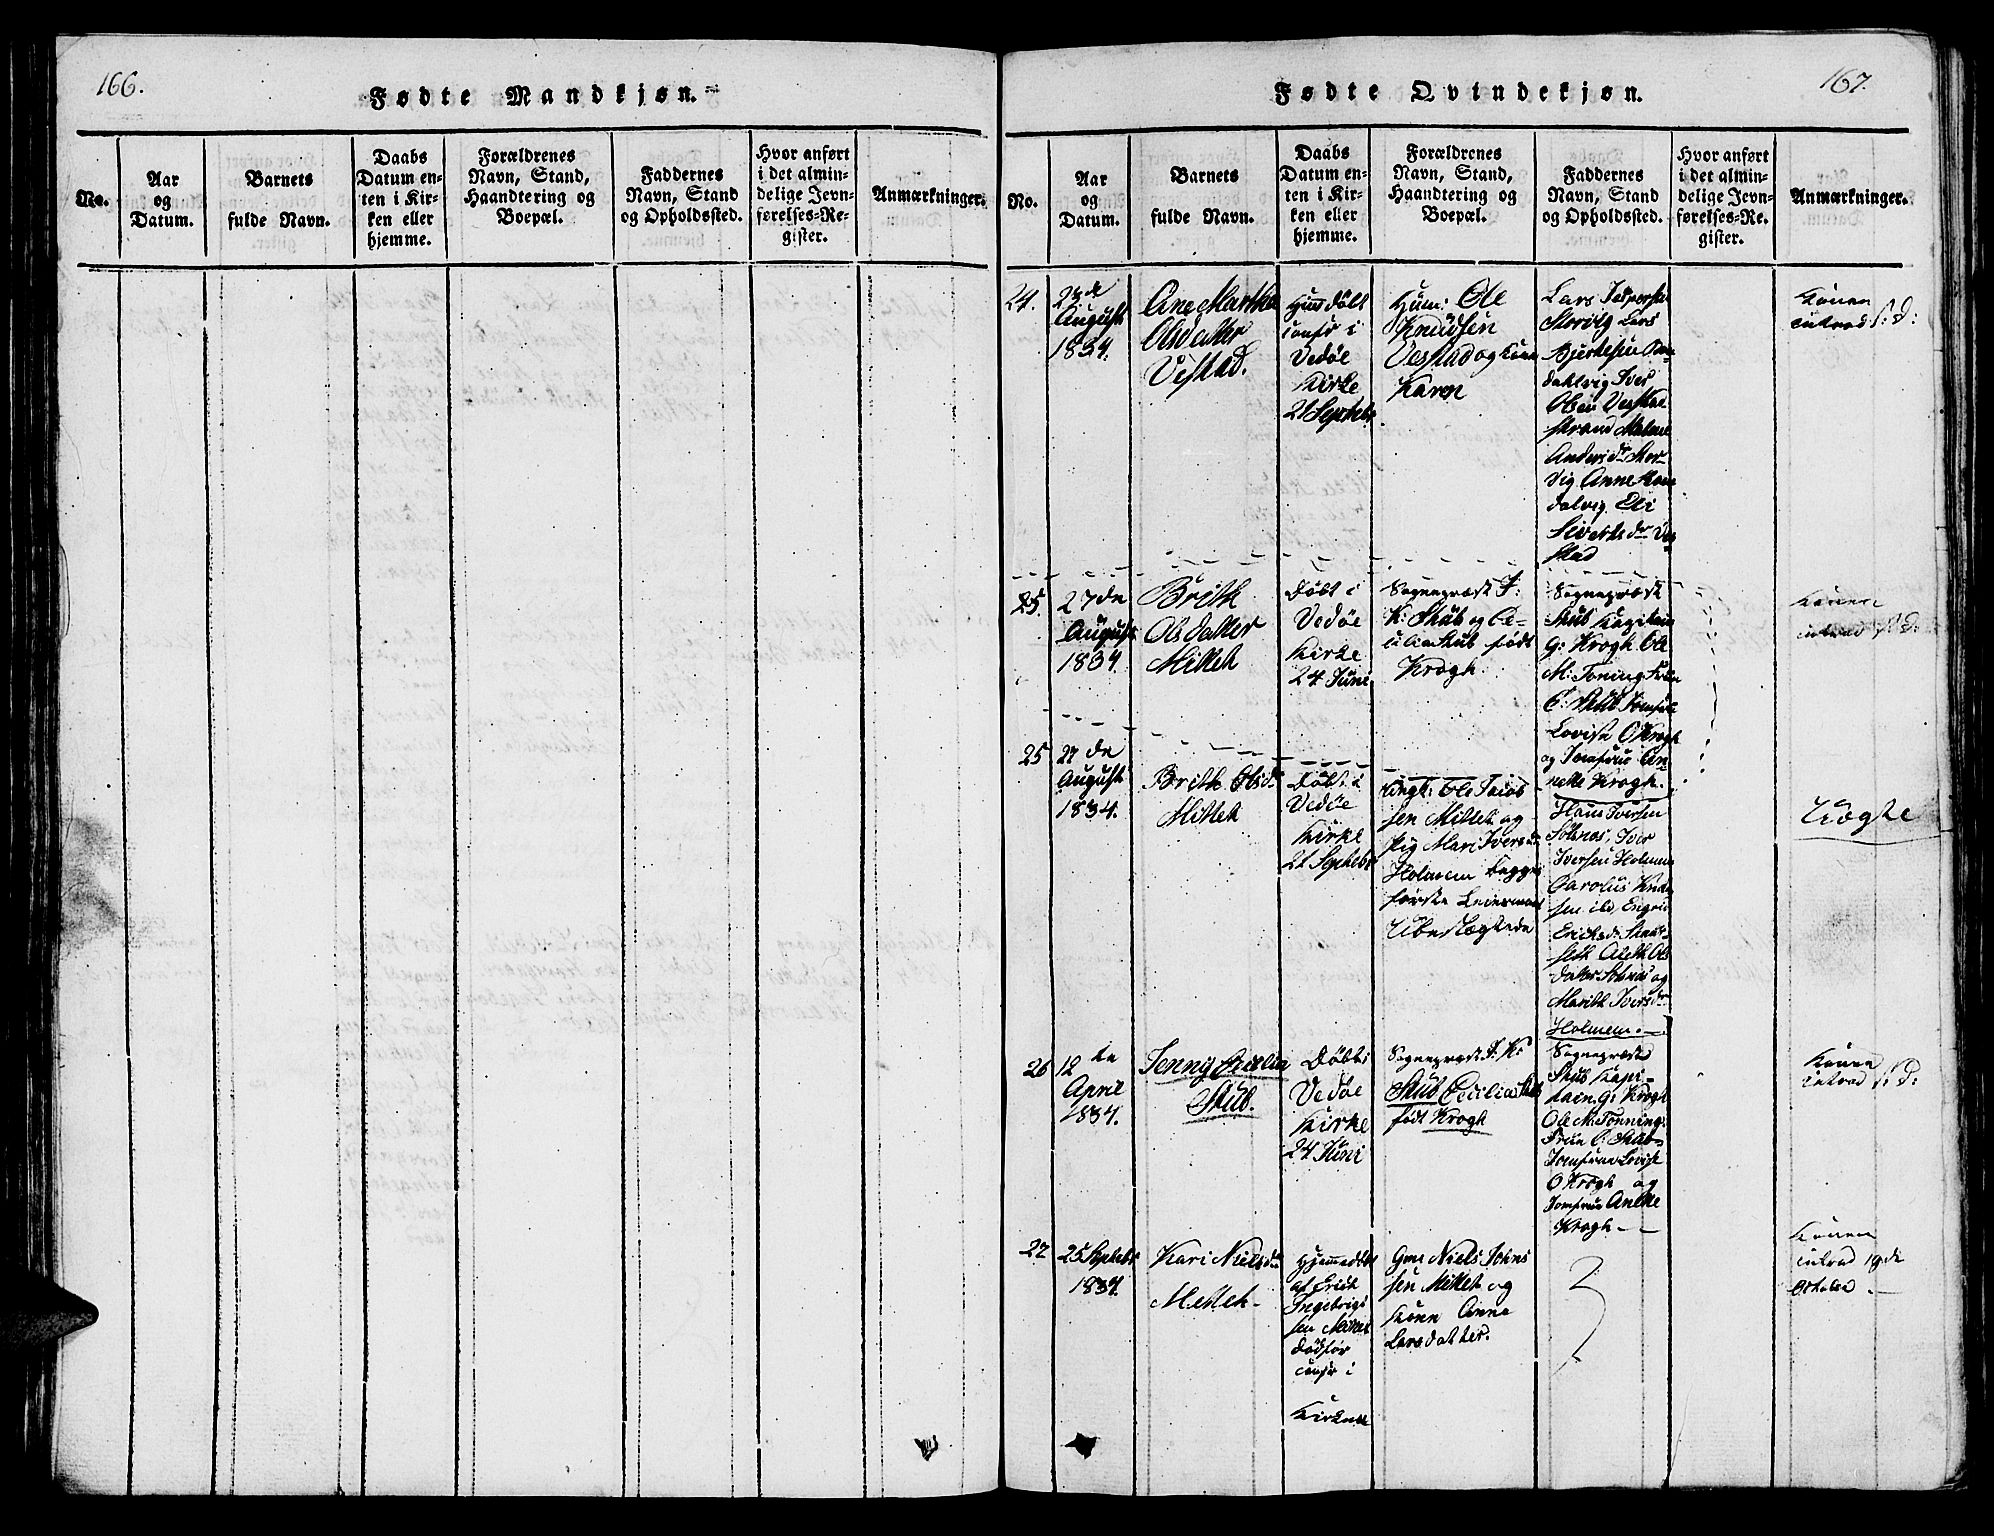 166.
Fødte Mandkjøn.
No.
Aar
og
Datum.
Barnets
fulde Navn.
Daabs
Datum en-
ten i Kir-
ken eller
hjemme.
Forældrenes
Navn, Stand,
Haandtering og
Boepæl.
Faddernes
Navn, Stand
og Opholdssted.
Hvor anført
i det almin-
delige Jevn-
førelses-Re-
gister.
Anmærkninger.
167.
Fødte Qvindekjøn.
No.
Aar
og
Datum.
Barnets
fulde Navn.
Daabs
Datum en-
ten i Kir-
ken eller
hjemme.
Forældrenes
Navn, Stand,
Haandtering og
Boepæl.
Faddernes
Navn, Stand
og Opholdssted.
Hvor anført
i det almin-
delige Jevn-
førelses-Re-
gister.
Anmærkninger.
24.
August
1834.
Ane Martha
Olsdatter
Vestad.
Hjmdöbt
i
Vedöe
Kirke
21 Septebr
Huum: Ole
Knudsen
Vestad og Kone
Karen
Lars Jespersen
Storvig Lars
Bjerkesen
dahlvig Iver
Olsen Vestad
strand Malene
Anders dr Stor-
vig Anne
dalvig Eli
Siverts dr Ve-
stad
Konen
introd s: d:
25.
27 de
August
1834.
Brith
Olsdatter
Mittet
Döbt i
Vedöe
Kirke
24 Juni
Sognepræst J:
K: Stub og Ce-
cilia Stub födt
Krogh.
Sognepræst
Stub Kapitain
G: Krogh Ole
M: Toning Frue
C: Stub Jomfru
Lovise O Krogh
og Jomfrue An-
nette Krogh.
Konen
introd s: d:
25
27 de
August
1834.
Brith Olsdr
Mittet
Döbt i
Vedöe
Kirke
21 Septebr
Ungk: Ole Jacob
sen Mittet og
Pig Mari Ivers dr
Holmem begges
förste Leiermaal
Ubeslægtede
Hans Iversen
Sölsnes, Iver
Iversen Holmem
Carolus Knud-
sen ibd, Engrid
Ericks dr
seth Aleth Ols
datter Solsnes og
Marith Ivers dr
Holmem.
Uægte
26
12 te
April
1834.
Jenny Cecilia
Stub.
Döbt i
Vedöe
Kirke
24 Juni
Sognepræst J: K:
Stub Cecilia Stub
födt Krogh
Sognepræst
Stub Kapi-
tain G: Krogh
Ole M: Tonning
Frue C: Stub
Jomfrue Lovise
O Krogh og
Jomfrue Anette
Krogh
Konen
introd s: d:
27
25 Septebr
1834.
Kari Nielsdr
Mittet
Hjemmedöbt
af Erick
Ingebrigt
sen Mittet
i
Kirken
Gm: Niels Johns
sen Mittet og
Kone Anne
Larsdatter.
Konen
introd 19 de
October